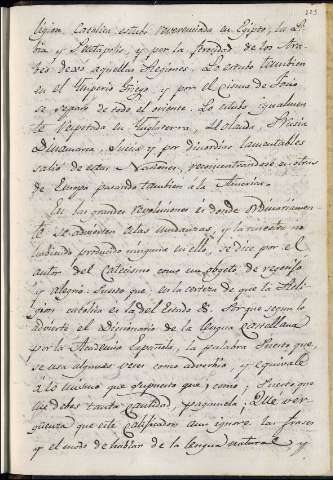 225
ligion Catolica estubo reverenciada en Egipto, en Li
bia, y Pentapolis, y por la ferocidad de los Ara
bes dexó aquellas Regiones. Lo estubo tambien
en el Imperio Griego, y por el Cisma de Focio
se separó de todo el oriente. Lo estubo igualmen
te respetada en Inglaterra, Holanda, Prusia
Dinamarca, Suecia y por discordias lamentables
salió de estas Naciones, reconcentrandose en otras
de Europa pasando tambien á la America.
En las grandes revoluciones és donde ordinariamen
te se advierten estas mudanzas, y la nuestra no
habiendo producido ninguna en ello, se dice por el
autor del Catecismo como un objeto de regocijo
y alegria. Puesto que, en la certeza de que la Reli
gion catolica es la del Estado &. Porque segun lo
advierte el diccionario de la lengua Castellana
por la Academia Española, la palabra Puesto que,
se usa algunas veces como adverbio, y equivale
a lo mismo que supuesto que, como; Puesto que
me debes tanta cantidad, pagamela: Que ver
guenza que este Calificador aun ignore las frases
y el modo de hablar de la lengua natural, y